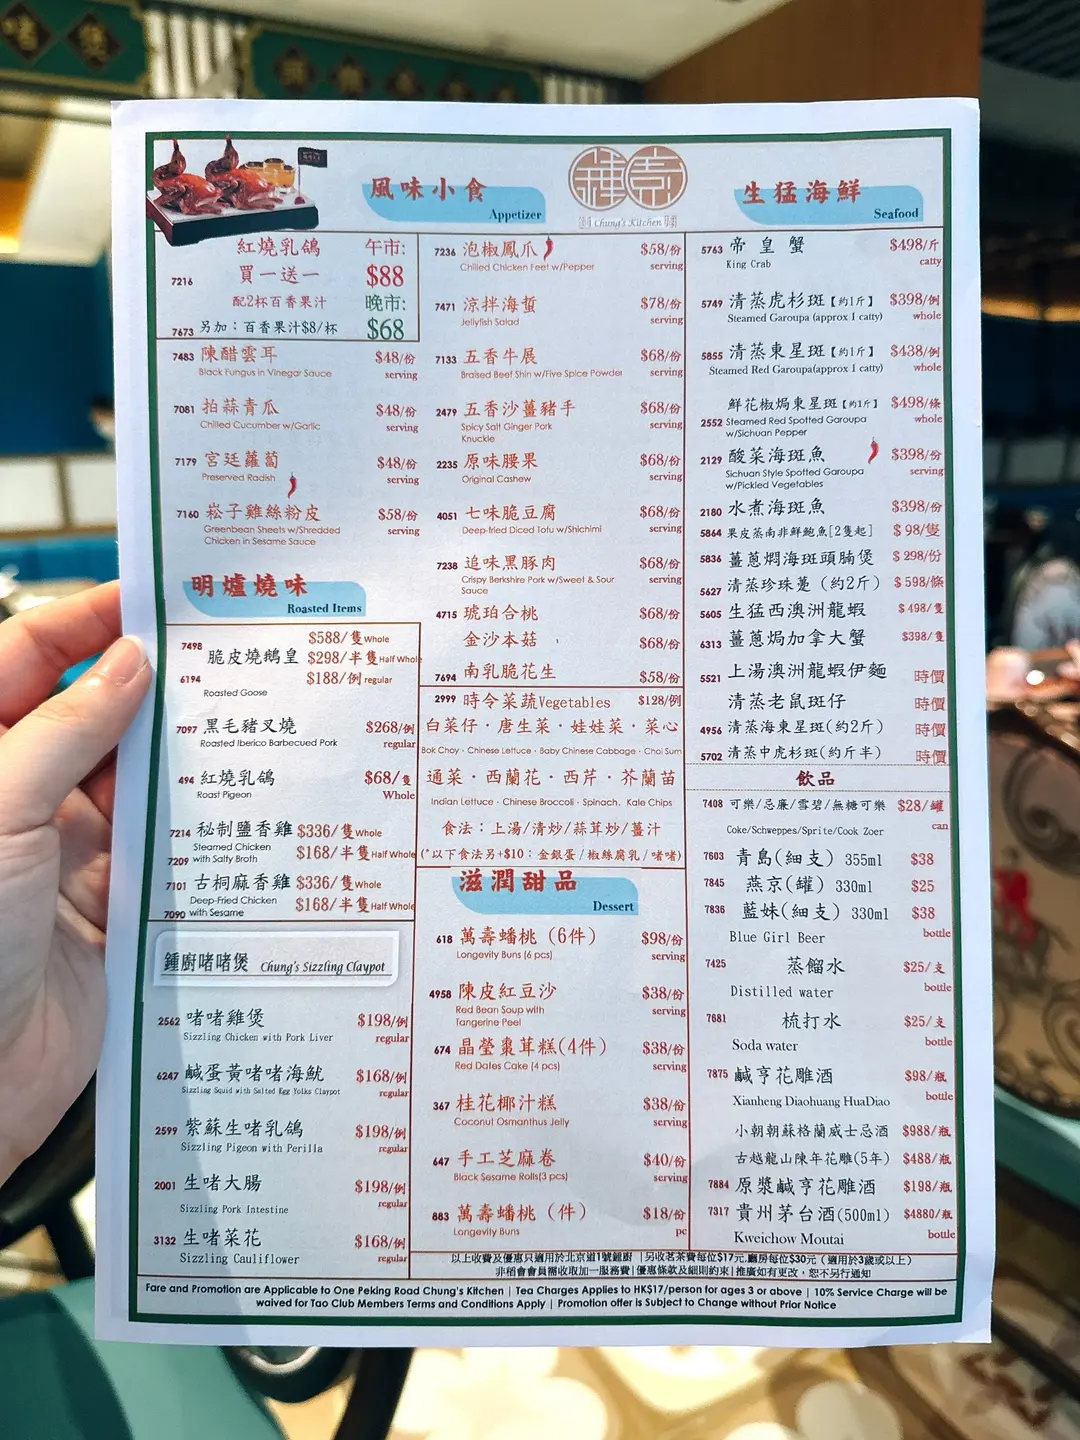 風味小食
Appetizer
鍾廚
Chung's Kitchen
生猛海鮮
Seafood
紅燒乳鴿 午市:
7216 買一送一 $88
配2杯百香果汁 晚市:
7673 另加：百香果汁$8/杯 $68
7483 陳醋雲耳 $48/份
Black Fungus in Vinegar Sauce serving
7081 拍蒜青瓜 $48/份
Chilled Cucumber w/Garlic serving
7179 宮廷蘿蔔 $48/份
Preserved Radish serving
7160 崧子雞絲粉皮 $58/份
Greenbean Sheets w/Shredded serving
Chicken in Sesame Sauce
明爐燒味
Roasted Items
7498 $588/隻Whole
脆皮燒鵝皇 $298/半隻Half Whole
6194 $188/例 regular
Roasted Goose
7097 黑毛豬叉燒 $268/例
Roasted Iberico Barbecued Pork regular
494 紅燒乳鴿 $68/隻
Roast Pigeon Whole
7214 秘制鹽香雞 $336/隻Whole
Steamed Chicken $168/半隻Half Whole
7209 with Salty Broth
7101 古桐麻香雞 $336/隻Whole
Deep-Fried Chicken $168/半隻Half Whole
7090 with Sesame
鍾廚啫啫煲 Chung's Sizzling Claypot
2562 啫啫雞煲 $198/例
Sizzling Chicken with Pork Liver regular
6247 鹹蛋黃啫啫海魷 $168/例
Sizzling Squid with Salted Egg Yolks Claypot regular
2599 紫蘇生啫乳鴿 $198/例
Sizzling Pigeon with Perilla regular
2001 生啫大腸 $198/例
Sizzling Pork Intestine regular
3132 生啫菜花 $168/例
Sizzling Cauliflower regular
7236 泡椒鳳爪 $58/份
Chilled Chicken Feet w/Pepper serving
7471 涼拌海蜇 $78/份
Jellyfish Salad serving
7133 五香牛展 $68/份
Braised Beef Shin w/Five Spice Powder serving
2479 五香沙薑豬手 $68/份
Spicy Salt Ginger Pork serving
Knuckle
2235 原味腰果 $68/份
Original Cashew serving
4051 七味脆豆腐 $68/份
Deep-fried Diced Tofu w/Shichimi serving
7238 追味黑豚肉 $68/份
Crispy Berkshire Pork w/Sweet & Sour serving
Sauce
4715 琥珀合桃 $68/份
金沙本菇 $68/份
7694 南乳脆花生 $58/份
2999 時令菜蔬Vegetables $128/例
白菜仔 · 唐生菜 · 娃娃菜 · 菜心
Bok Choy · Chinese Lettuce · Baby Chinese Cabbage · Choi Sum
通菜 · 西蘭花 · 西芹 · 芥蘭苗
Indian Lettuce · Chinese Broccoli · Spinach. Kale Chips
食法：上湯/清炒/蒜茸炒/薑汁
(*以下食法另+$10：金銀蛋/椒絲腐乳/啫啫)
滋潤甜品
Dessert
618 萬壽蟠桃 (6件) $98/份
Longevity Buns (6 pcs) serving
4958 陳皮紅豆沙 $38/份
Red Bean Soup with serving
Tangerine Peel
674 晶瑩棗茸糕(4件) $38/份
Red Dates Cake (4 pcs) serving
367 桂花椰汁糕 $38/份
Coconut Osmanthus Jelly serving
647 手工芝麻卷 $40/份
Black Sesame Rolls(3 pcs) serving
883 萬壽蟠桃 (件) $18/份
Longevity Buns pc
5763 帝皇蟹 $498/斤
King Crab catty
5749 清蒸虎杉斑【約1斤】 $398/例
Steamed Garoupa (approx 1 catty) whole
5855 清蒸東星斑【約1斤】 $438/例
Steamed Red Garoupa(approx 1 catty) whole
鮮花椒焗東星斑【約1斤】 $498/條
2552 Steamed Red Spotted Garoupa whole
w/Sichuan Pepper
2129 酸菜海斑魚 $398/份
Sichuan Style Spotted Garoupa serving
w/Pickled Vegetables
2180 水煮海斑魚 $398/份
5864 果皮蒸南非鮮鮑魚[2隻起] $ 98/隻
5836 薑蔥燜海斑頭腩煲 $ 298/份
5627 清蒸珍珠躉 (約2斤) $ 598/條
5605 生猛西澳洲龍蝦 $ 498/隻
6313 薑蔥焗加拿大蟹 $398/隻
5521 上湯澳洲龍蝦伊麵 時價
清蒸老鼠斑仔 時價
4956 清蒸海東星斑(約2斤) 時價
5702 清蒸中虎杉斑(約斤半) 時價
飲品
7408 可樂/忌廉/雪碧/無糖可樂 $28/罐
Coke/Schweppes/Sprite/Cook Zoer can
7603 青島(細支) 355ml $38
7845 燕京(罐) 330ml $25
7836 藍妹(細支) 330ml $38
Blue Girl Beer bottle
7425 蒸餾水 $25/支
Distilled water bottle
7681 梳打水 $25/支
Soda water bottle
7875 鹹亨花雕酒 $98/瓶
Xianheng Diaohuang HuaDiao bottle
小朝朝蘇格蘭威士忌酒 $988/瓶
古越龍山陳年花雕(5年) $488/瓶
7884 原漿鹹亨花雕酒 $198/瓶
7317 貴州茅台酒(500ml) $4880/瓶
Kweichow Moutai bottle
以上收費及優惠只適用於北京道1號鍾廚 |另收茗茶費每位$17元.廳房每位$30元 (適用於3歲或以上)
非稻會會員需收取加一服務費|優惠條款及細則約束|推廣如有更改，恕不另行通知
Fare and Promotion are Applicable to One Peking Road Chung's Kitchen | Tea Charges Applies to HK$17/person for ages 3 or above | 10% Service Charge will be
waived for Tao Club Members Terms and Conditions Apply | Promotion offer is Subject to Change without Prior Notice